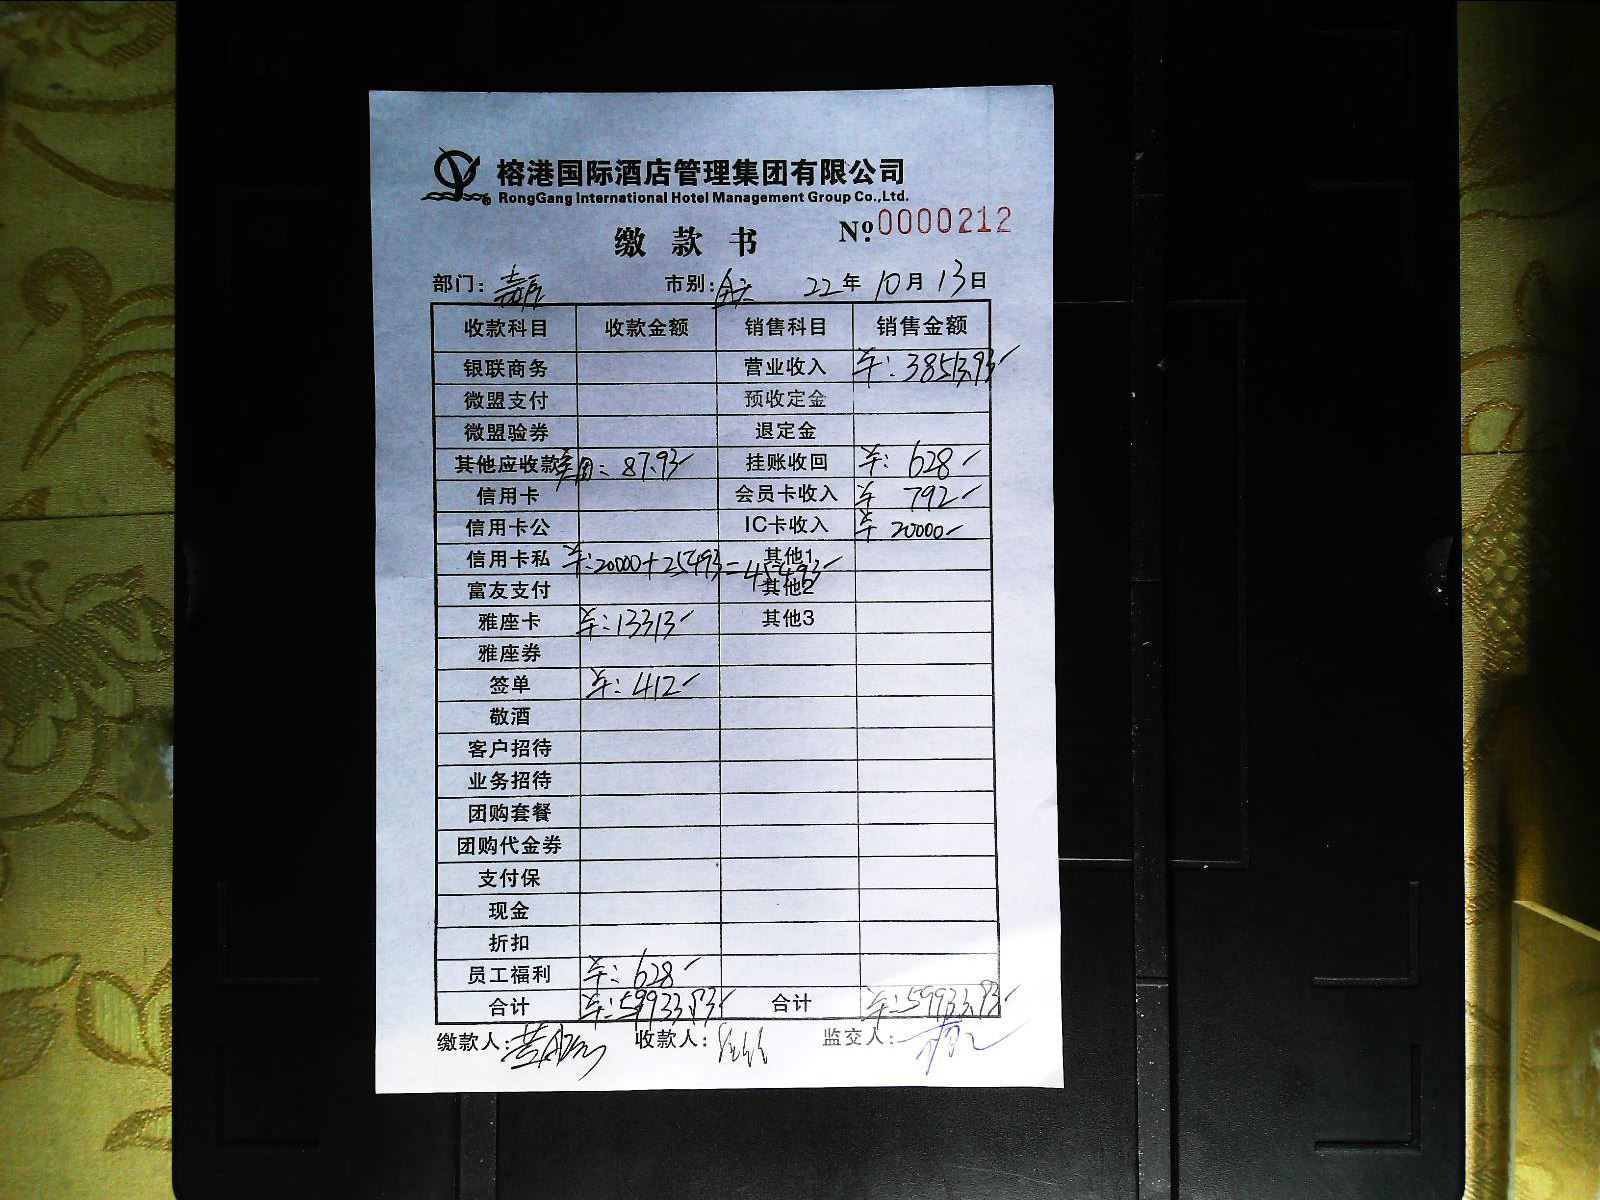 榕港国际酒店管理集团有限公司
RongGang International Hotel Management Group Co.,Ltd.
缴款书 Nº.0000212
部门: 市别: 22年10月13日
收款科目 收款金额 销售科目 销售金额
银联商务 营业收入 38513.93
微盟支付 预收定金
微盟验券 退定金
其他应收款 87.93 挂账收回 628
信用卡 会员卡收入 792
信用卡公 IC卡收入 20000
信用卡私 20000+25493=45493 其他1
富友支付 其他2
雅座卡 13313 其他3
雅座券
签单 412
敬酒
客户招待
业务招待
团购套餐
团购代金券
支付保
现金
折扣
员工福利 628
合计 59933.93 合计 59933.93
缴款人: 收款人: 监交人: